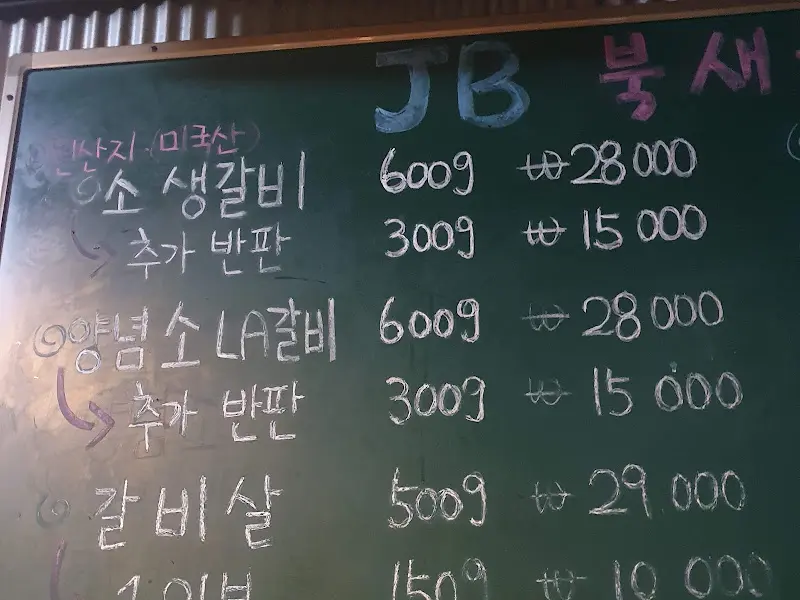 JB 북새
원산지 (미국산)
소 생갈비 600g ₩28000
추가 반판 300g ₩15000
양념소 LA갈비 600g ₩28000
추가 반판 300g ₩15000
갈비살 500g ₩29000
1인분 150g ₩10000